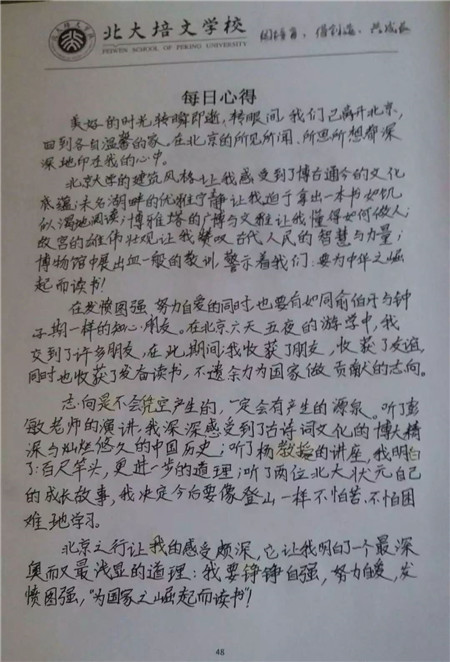 北大培文学校
PEIWEN SCHOOL OF PEKING UNIVERSITY
同培育、借创造、共成长
每日心得
美好的时光转瞬即逝，转眼间，我们已离开北京，
回到各自温馨的家，在北京的所见所闻、所思所想都深
深地印在我的心中。
北京大学的建筑风格让我感受到了博古通今的文化
底蕴；未名湖畔的优雅宁静让我迫于拿出一本书如饥
似渴地阅读；博雅塔的广博与文雅让我懂得如何做人；
故宫的雄伟壮观让我赞叹古代人民的智慧与力量；
博物馆中展出血一般的教训，警示着我们：要为中华之崛
起而读书！
在发愤图强，努力自爱的同时，也要有如同俞伯牙与钟
子期一样的知心朋友。在北京六天五夜的游学中，我
交到了许多朋友，在此期间，我收获了朋友，收获了友谊，
同时也收获了发奋读书，不遗余力为国家做贡献的志向。
志向是不会凭空产生的，一定会有产生的源泉。听了彭
敏老师的演讲，我深深感受到了古诗词文化的博大精
深与灿烂悠久的中国历史；听了杨教授的讲座，我明白
了：百尺竿头，更进一步的道理；听了两位北大状元自己
的成长故事，我决定今后要像登山一样不怕苦、不怕困
难地学习。
北京之行让我的感受颇深，它让我明白了一个最深
奥而又最浅显的道理：我要铮铮自强，努力自爱，发
愤图强，“为国家之崛起而读书”！
48